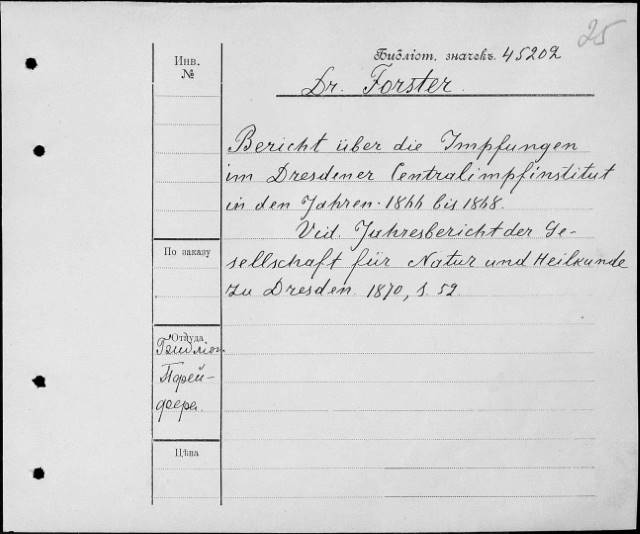 25
Инв.
№
Библіот. значекъ. 45202
Dr. Forster.
Bericht über die Impfungen
im Dresdener Centralimpfinstitut
in den Jahren 1866 bis 1868.
Vid. Jahresbericht der Ge-
sellschaft für Natur und Heilkunde
zu Dresden. 1870, S. 52
По заказу
Откуда
Библіот.
Порей-
фера.
Цѣна